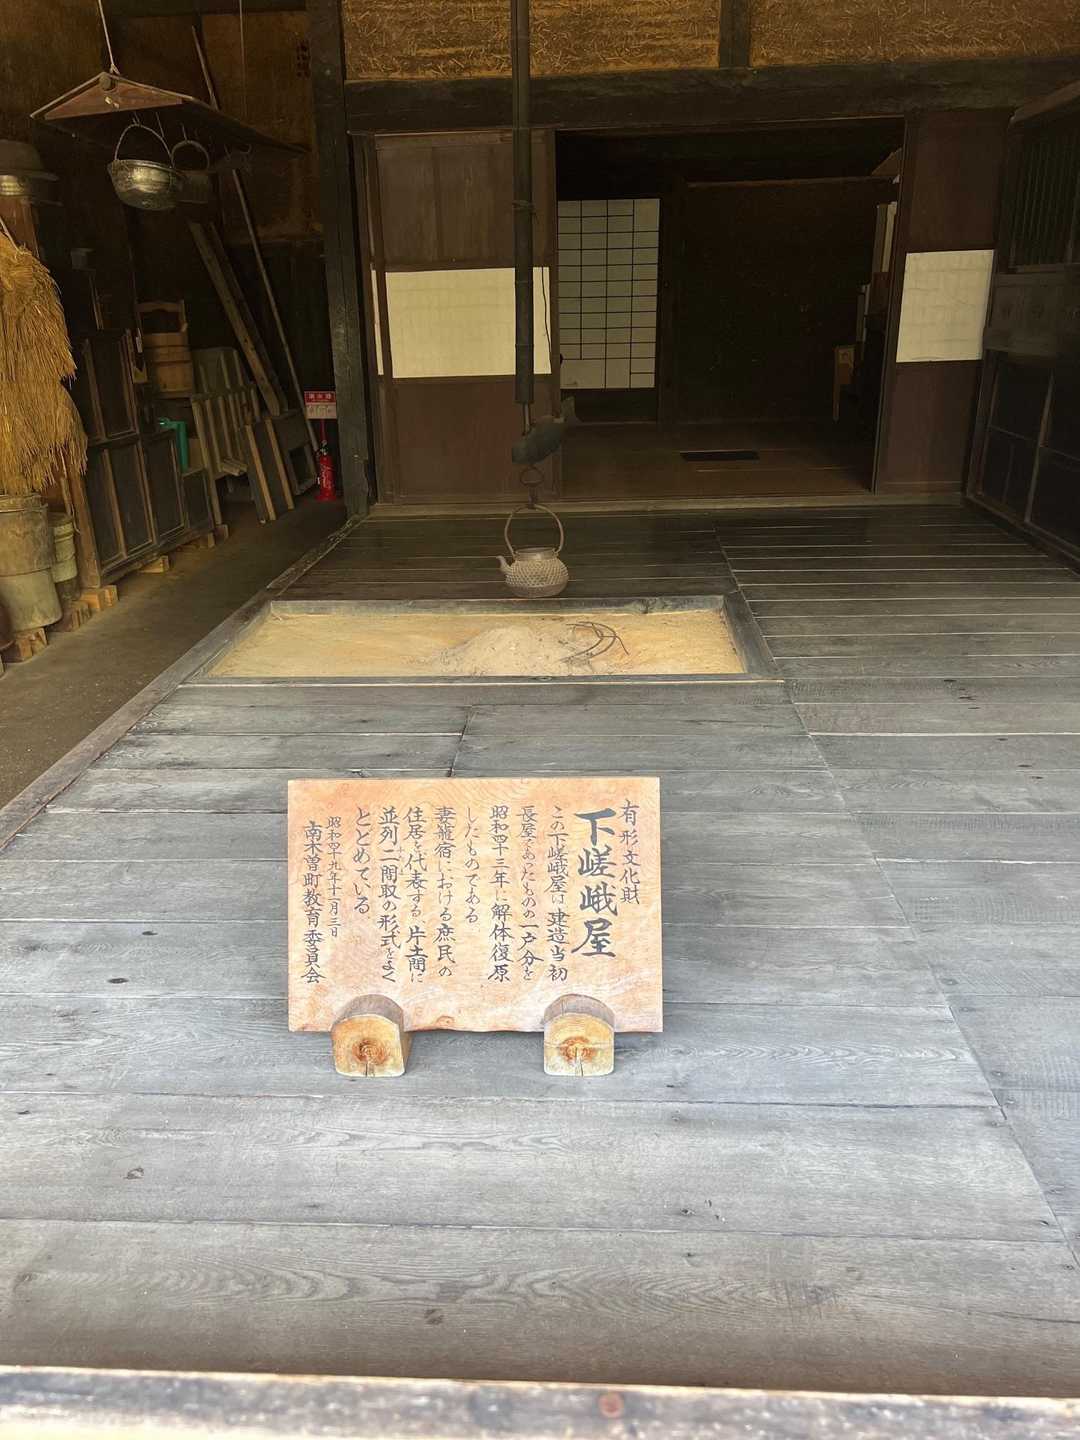 有形文化財
下嵯峨屋
この下嵯峨屋は建造当初
長屋であったものの一戸分を
昭和四十三年に解体復原
したものである
妻籠宿における庶民の
住居を代表する、片土間に
並列二間取の形式をよく
とどめている
昭和四十九年十一月三日
南木曽町教育委員会
消火器